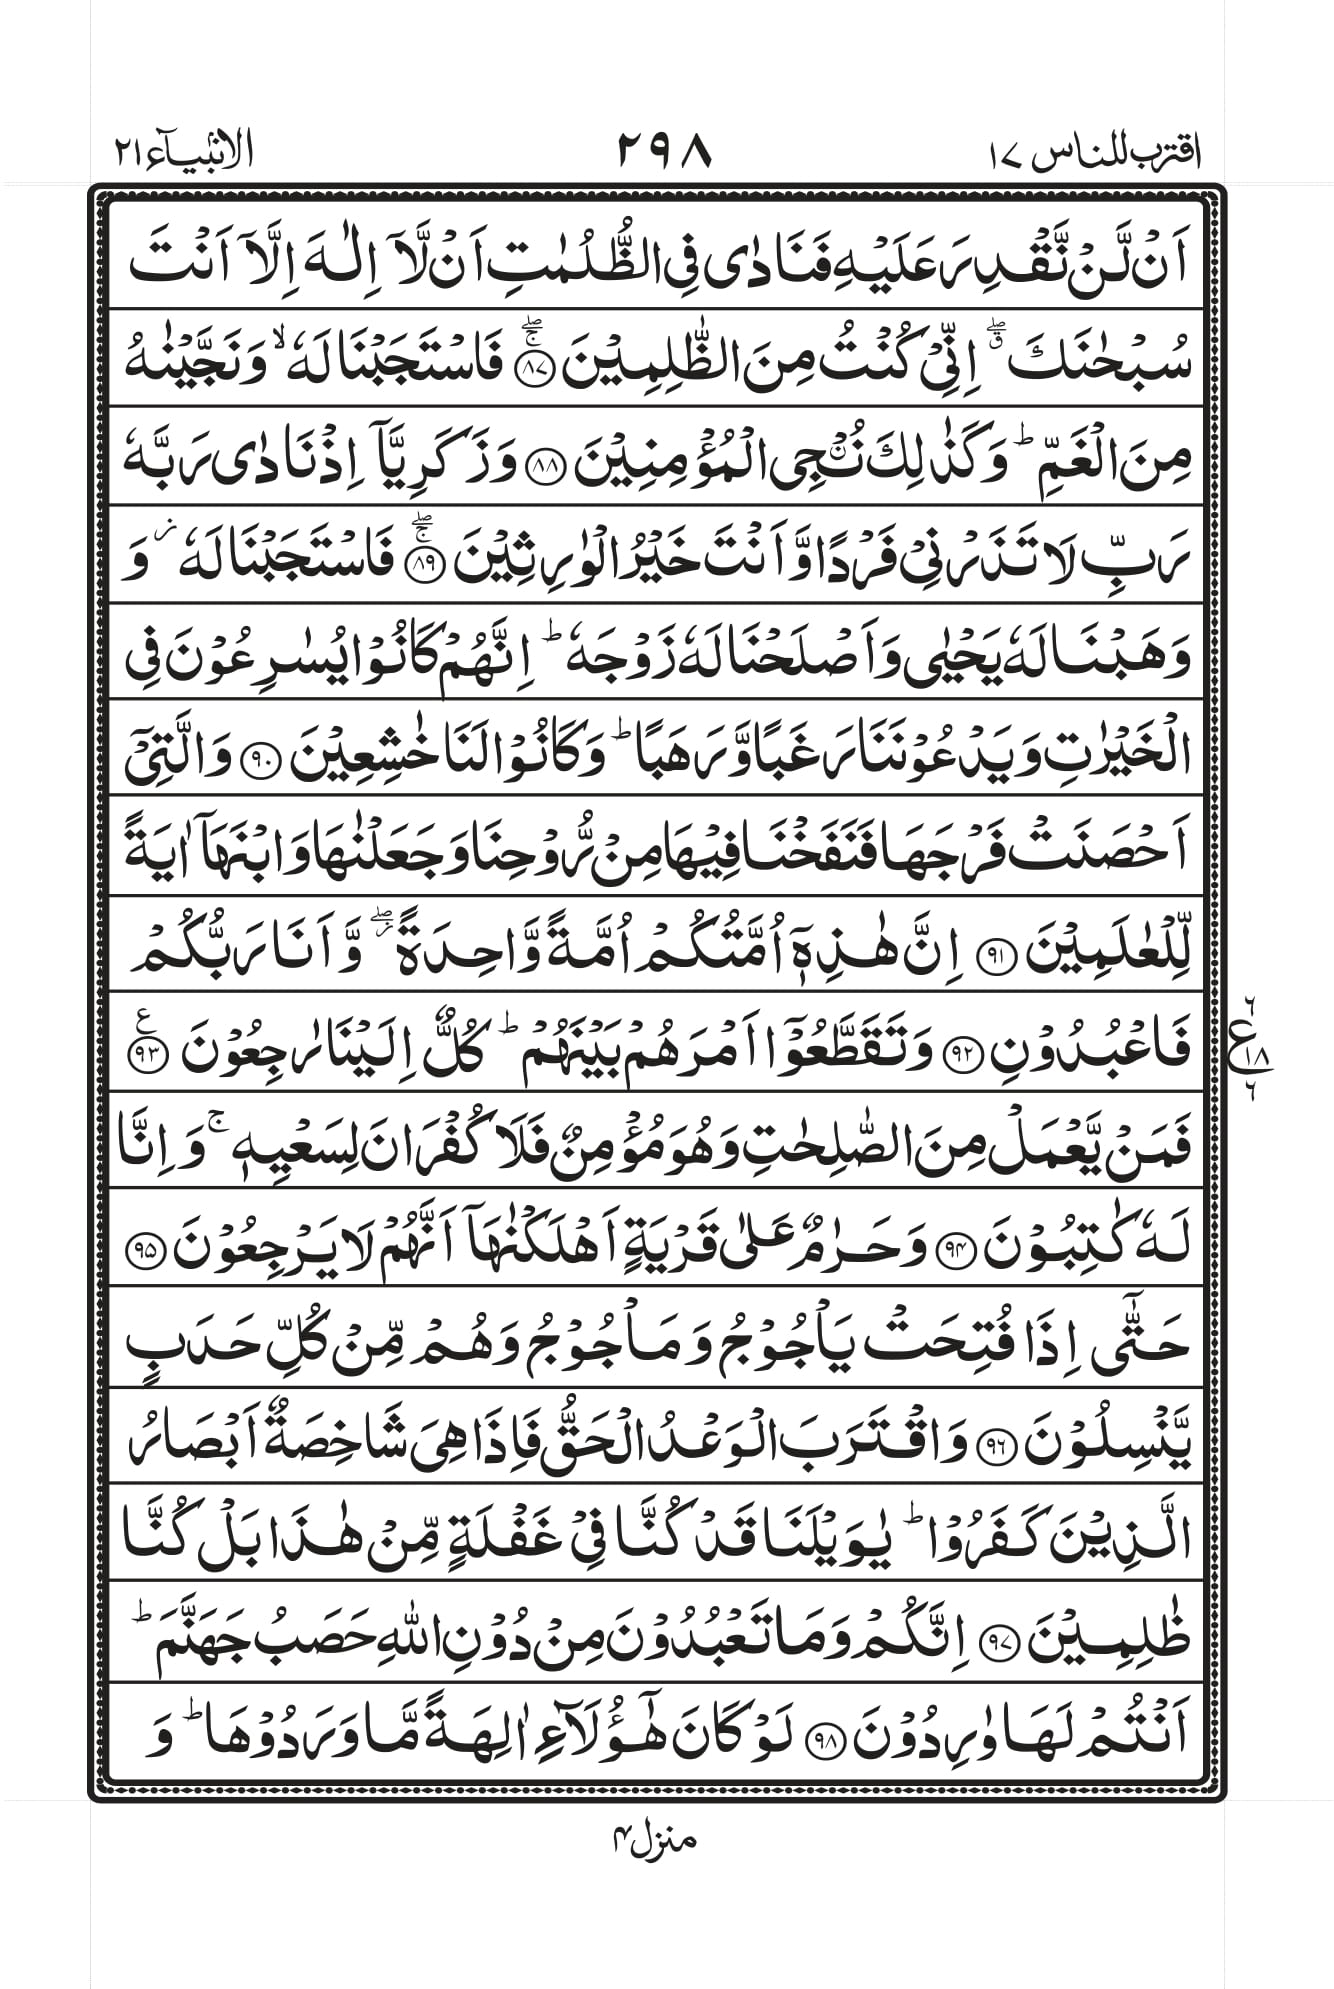 اقترب للناس ١٧
٢٩٨
الانبيآء ٢١
اَنْ لَّنْ نَّقْدِرَ عَلَيْهِ فَنَادٰى فِى الظُّلُمٰتِ اَنْ لَّآ اِلٰهَ اِلَّآ اَنْتَ
سُبْحٰنَكَ ۖق اِنِّىْ كُنْتُ مِنَ الظّٰلِمِيْنَ ۚۖ ﴿٨٧﴾ فَاسْتَجَبْنَا لَهٗ ۙ وَنَجَّيْنٰهُ
مِنَ الْغَمِّ ؕ وَكَذٰلِكَ نُـنْجِى الْمُؤْمِنِيْنَ ﴿٨٨﴾ وَزَكَرِيَّآ اِذْ نَادٰى رَبَّهٗ
رَبِّ لَا تَذَرْنِىْ فَرْدًا وَّاَنْتَ خَيْرُ الْوٰرِثِيْنَ ۚۖ ﴿٨٩﴾ فَاسْتَجَبْنَا لَهٗ ز وَ
وَهَبْنَا لَهٗ يَحْيٰى وَاَصْلَحْنَا لَهٗ زَوْجَهٗ ؕ اِنَّهُمْ كَانُوْا يُسٰرِعُوْنَ فِى
الْخَيْرٰتِ وَيَدْعُوْنَنَا رَغَبًا وَّرَهَبًا ؕ وَكَانُوْا لَنَا خٰشِعِيْنَ ﴿٩٠﴾ وَالَّتِىْٓ
اَحْصَنَتْ فَرْجَهَا فَنَفَخْنَا فِيْهَا مِنْ رُّوْحِنَا وَجَعَلْنٰهَا وَابْنَهَآ اٰيَةً
لِّلْعٰلَمِيْنَ ﴿٩١﴾ اِنَّ هٰذِهٖٓ اُمَّتُكُمْ اُمَّةً وَّاحِدَةً ۖز وَّاَنَا رَبُّكُمْ
فَاعْبُدُوْنِ ﴿٩٢﴾ وَتَقَطَّعُوْٓا اَمْرَهُمْ بَيْنَهُمْ ؕ كُلٌّ اِلَيْنَا رٰجِعُوْنَ ع ﴿٩٣﴾
٦
ع ١٨
٦
فَمَنْ يَّعْمَلْ مِنَ الصّٰلِحٰتِ وَهُوَ مُؤْمِنٌ فَلَا كُفْرَانَ لِسَعْيِهٖ ۚ وَاِنَّا
لَهٗ كٰتِبُوْنَ ﴿٩٤﴾ وَحَرٰمٌ عَلٰى قَرْيَةٍ اَهْلَكْنٰهَآ اَنَّهُمْ لَا يَرْجِعُوْنَ ﴿٩٥﴾
حَتّٰٓى اِذَا فُتِحَتْ يَاْجُوْجُ وَمَاْجُوْجُ وَهُمْ مِّنْ كُلِّ حَدَبٍ
يَّنْسِلُوْنَ ﴿٩٦﴾ وَاقْتَرَبَ الْوَعْدُ الْحَقُّ فَاِذَا هِىَ شَاخِصَةٌ اَبْصَارُ
الَّذِيْنَ كَفَرُوْا ؕ يٰوَيْلَنَا قَدْ كُنَّا فِىْ غَفْلَةٍ مِّنْ هٰذَا بَلْ كُنَّا
ظٰلِمِيْنَ ﴿٩٧﴾ اِنَّكُمْ وَمَا تَعْبُدُوْنَ مِنْ دُوْنِ اللّٰهِ حَصَبُ جَهَنَّمَ ؕ
اَنْتُمْ لَهَا وٰرِدُوْنَ ﴿٩٨﴾ لَوْ كَانَ هٰٓؤُلَآءِ اٰلِهَةً مَّا وَرَدُوْهَا ؕ وَ
منزل ۴